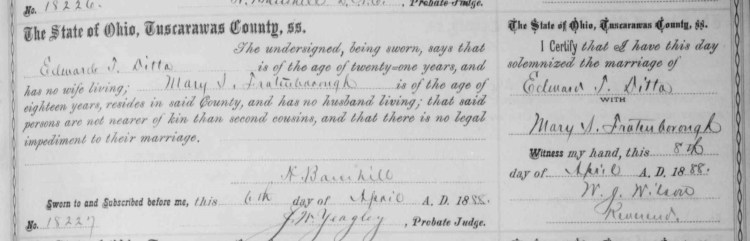 No. 18226.
Probate Judge.
The State of Ohio, Tuscarawas County, ss.
The undersigned, being sworn, says that
Edward T. Ditta is of the age of twenty-one years, and
has no wife living; Mary S. Fratenborough is of the age of
eighteen years, resides in said County, and has no husband living; that said
persons are not nearer of kin than second cousins, and that there is no legal
impediment to their marriage.
N. Barnhill
Sworn to and Subscribed before me, this 6th day of April A. D. 1888.
No. 18227 J. W. Yeagley, Probate Judge.
The State of Ohio, Tuscarawas County, ss.
I Certify that I have this day
solemnized the marriage of
Edward T. Ditta
WITH
Mary S. Fratenborough
Witness my hand, this 8th
day of April A. D. 1888.
W. J. Wilson
Reverend.